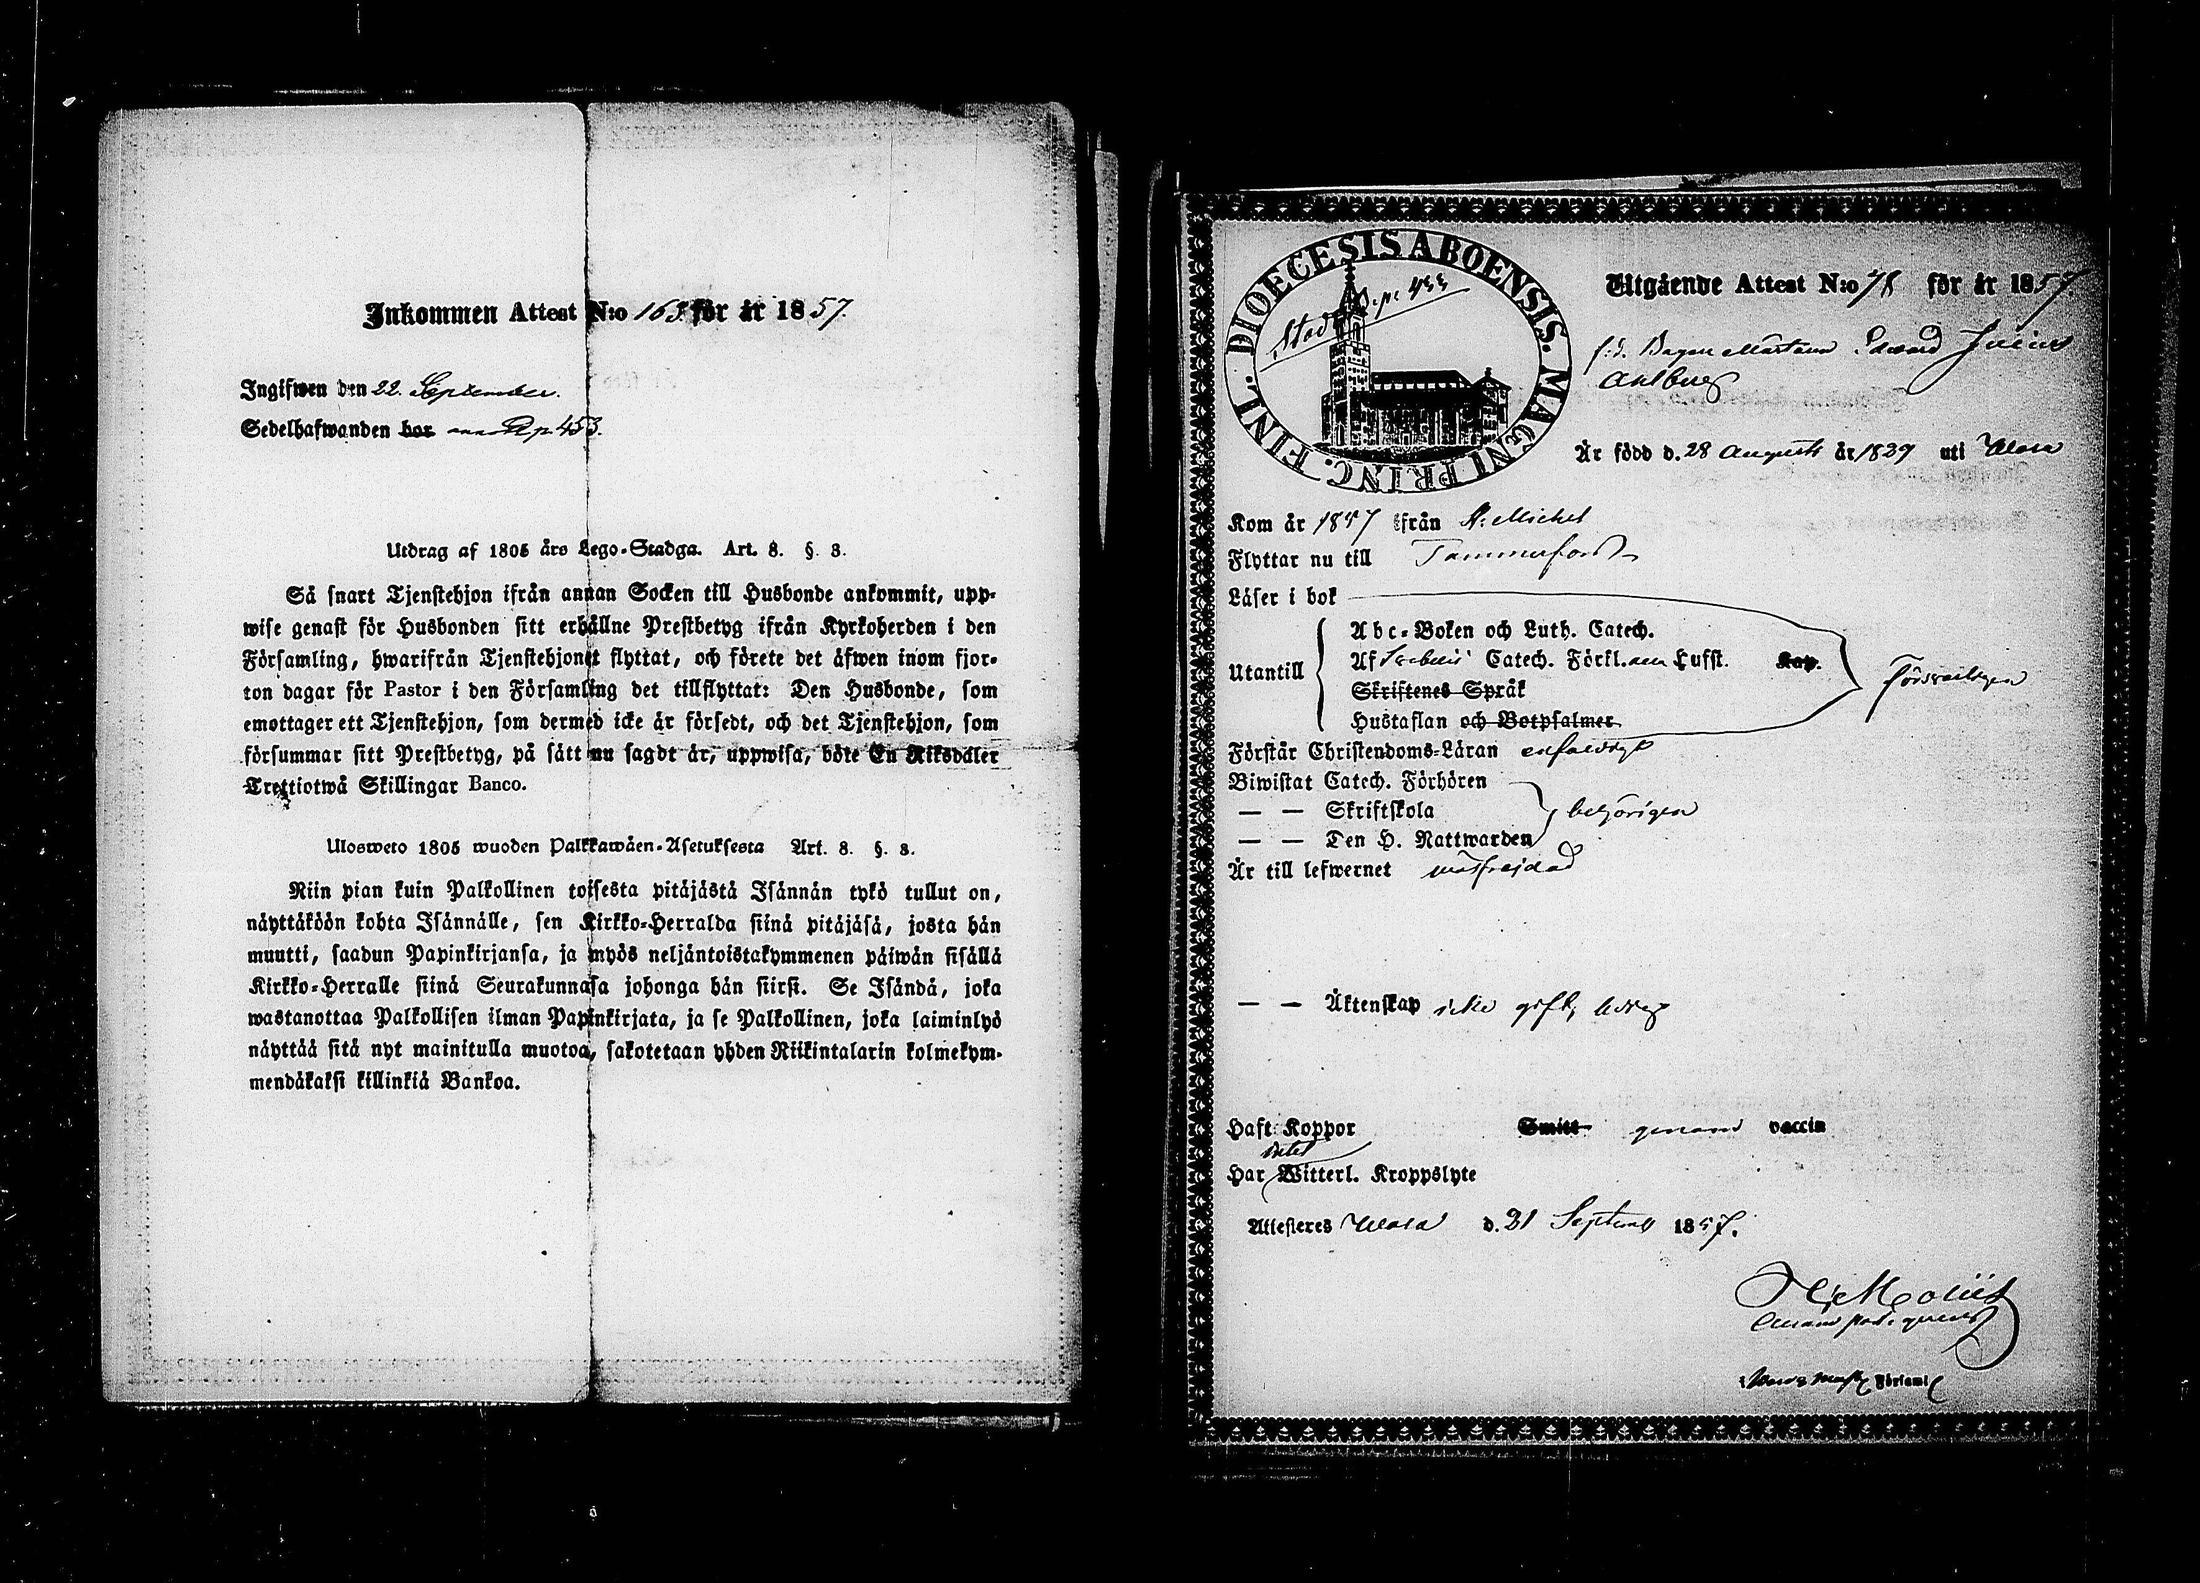 Inkommen Attest N:o 163 för år 1857.
Ingifwen den 22. September.
Sedelhafwanden bor p. 453.
Utdrag af 1805 års Lego-Stadga. Art. 8. §. 3.
Så snart Tjenstehjon ifrån annan Socken till Husbonde ankommit, upp-
wise genast för Husbonden sitt erhållne Prestbetyg ifrån Kyrkoherden i den
Församling, hwarifrån Tjenstehjonet flyttat, och förete det äfwen inom fjor-
ton dagar för Pastor i den Församling det tillflyttat: Den Husbonde, som
emottager ett Tjenstehjon, som dermed icke är försedt, och det Tjenstehjon, som
försummar sitt Prestbetyg, på sätt nu sagdt är, uppwisa, böte En Riksdaler
Trettiotwå Skillingar Banco.
Ulosweto 1805 wuoden Palkkawäen-Asetuksesta Art. 8. §. 3.
Niin pian kuin Palkollinen toisesta pitäjästä Isännän tykö tullut on,
näyttäköön kohta Isännälle, sen Kirkko-Herralda siinä pitäjäsä, josta hän
muutti, saadun Papinkirjansa, ja myös neljäntoistakymmenen päiwän sisällä
Kirkko-Herralle siinä Seurakunnasa johonga hän siirsi. Se Isändä, joka
wastanottaa Palkollisen ilman Papinkirjata, ja se Palkollinen, joka laiminlyö
näyttää sitä nyt mainitulla muotoa, sakotetaan yhden Riikintalarin kolmekym-
mendäkaksi killinkiä Bankoa.
DIOECESIS ABOENSIS. MAGNI PRINC. FINL.
Stads p. 453
Utgående Attest N:o 78 för år 1857.
f.d. Bagare Edvard Julius
Ahlberg
Är född d. 28 Augusti år 1829 uti Wasa
Kom år 1847 ifrån St. Michel
Flyttar nu till Tammerfors
Läser i bok
Utantill
Abc-Boken och Luth. Catech.
Af Svebelii Catech. Förkl. Hufst. Kap.
Skriftenes Språk
Hustaflan och Botpsalmer
försvarligen
Förstår Christendoms-Läran enfaldigt
Biwistat Catech. Förhören
— — Skriftskola
— — Den H. Nattwarden
behörigen
Är till lefwernet wälfrejdad
— — Äktenskap icke gift, ledig
Haft Koppor Smitt genom vaccin
Har intet Witterl. Kroppslyte
Attesteras Wasa d. 21 September 1857.
Församl.